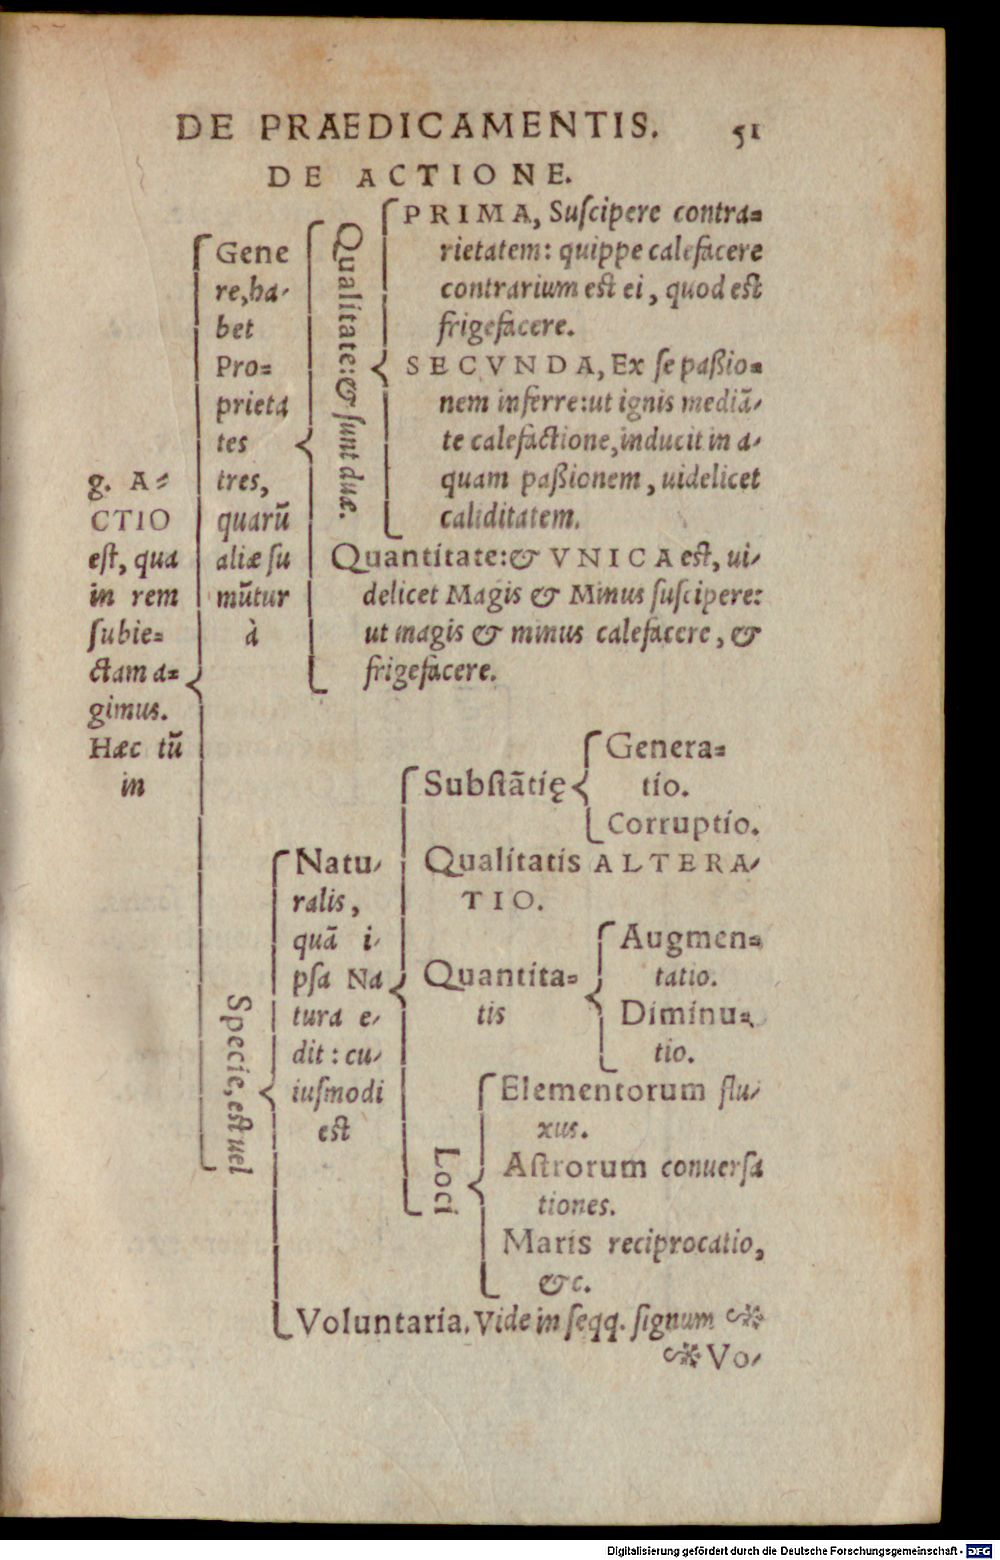 DE PRAEDICAMENTIS. 51
DE ACTIONE.
g. A⸗
CTIO
est, qua
in rem
ſubie⸗
ctam a⸗
gimus.
Hæc tũ
in
Gene
re, ha⸗
bet
Pro⸗
prieta
tes
tres,
quarũ
aliæ ſu
mũtur
à
Qualitate: & ſunt duæ.
PRIMA, Suſcipere contra⸗
rietatem: quippe calefacere
contrarium est ei, quod est
frigefacere.
SECVNDA, Ex ſe paßio⸗
nem inferre: ut ignis mediã⸗
te calefactione, inducit in a⸗
quam paßionem, uidelicet
caliditatem.
Quantitate: & VNICA est, ui⸗
delicet Magis & Minus ſuſcipere:
ut magis & minus calefacere, &
frigefacere.
Specie, est uel
Natu⸗
ralis,
quã i⸗
pſa Na
tura e⸗
dit: cu⸗
iuſmodi
est
Subſtãtię
Genera⸗
tio.
Corruptio.
Qualitatis ALTERA⸗
TIO.
Quantita⸗
tis
Augmen⸗
tatio.
Diminu⸗
tio.
Loci
Elementorum flu⸗
xus.
Aſtrorum conuerſa
tiones.
Maris reciprocatio,
&c.
Voluntaria. Vide in ſeqq. ſignum ☙❋
☙❋ Vo⸗
Digitalisierung gefördert durch die Deutsche Forschungsgemeinschaft - DFG